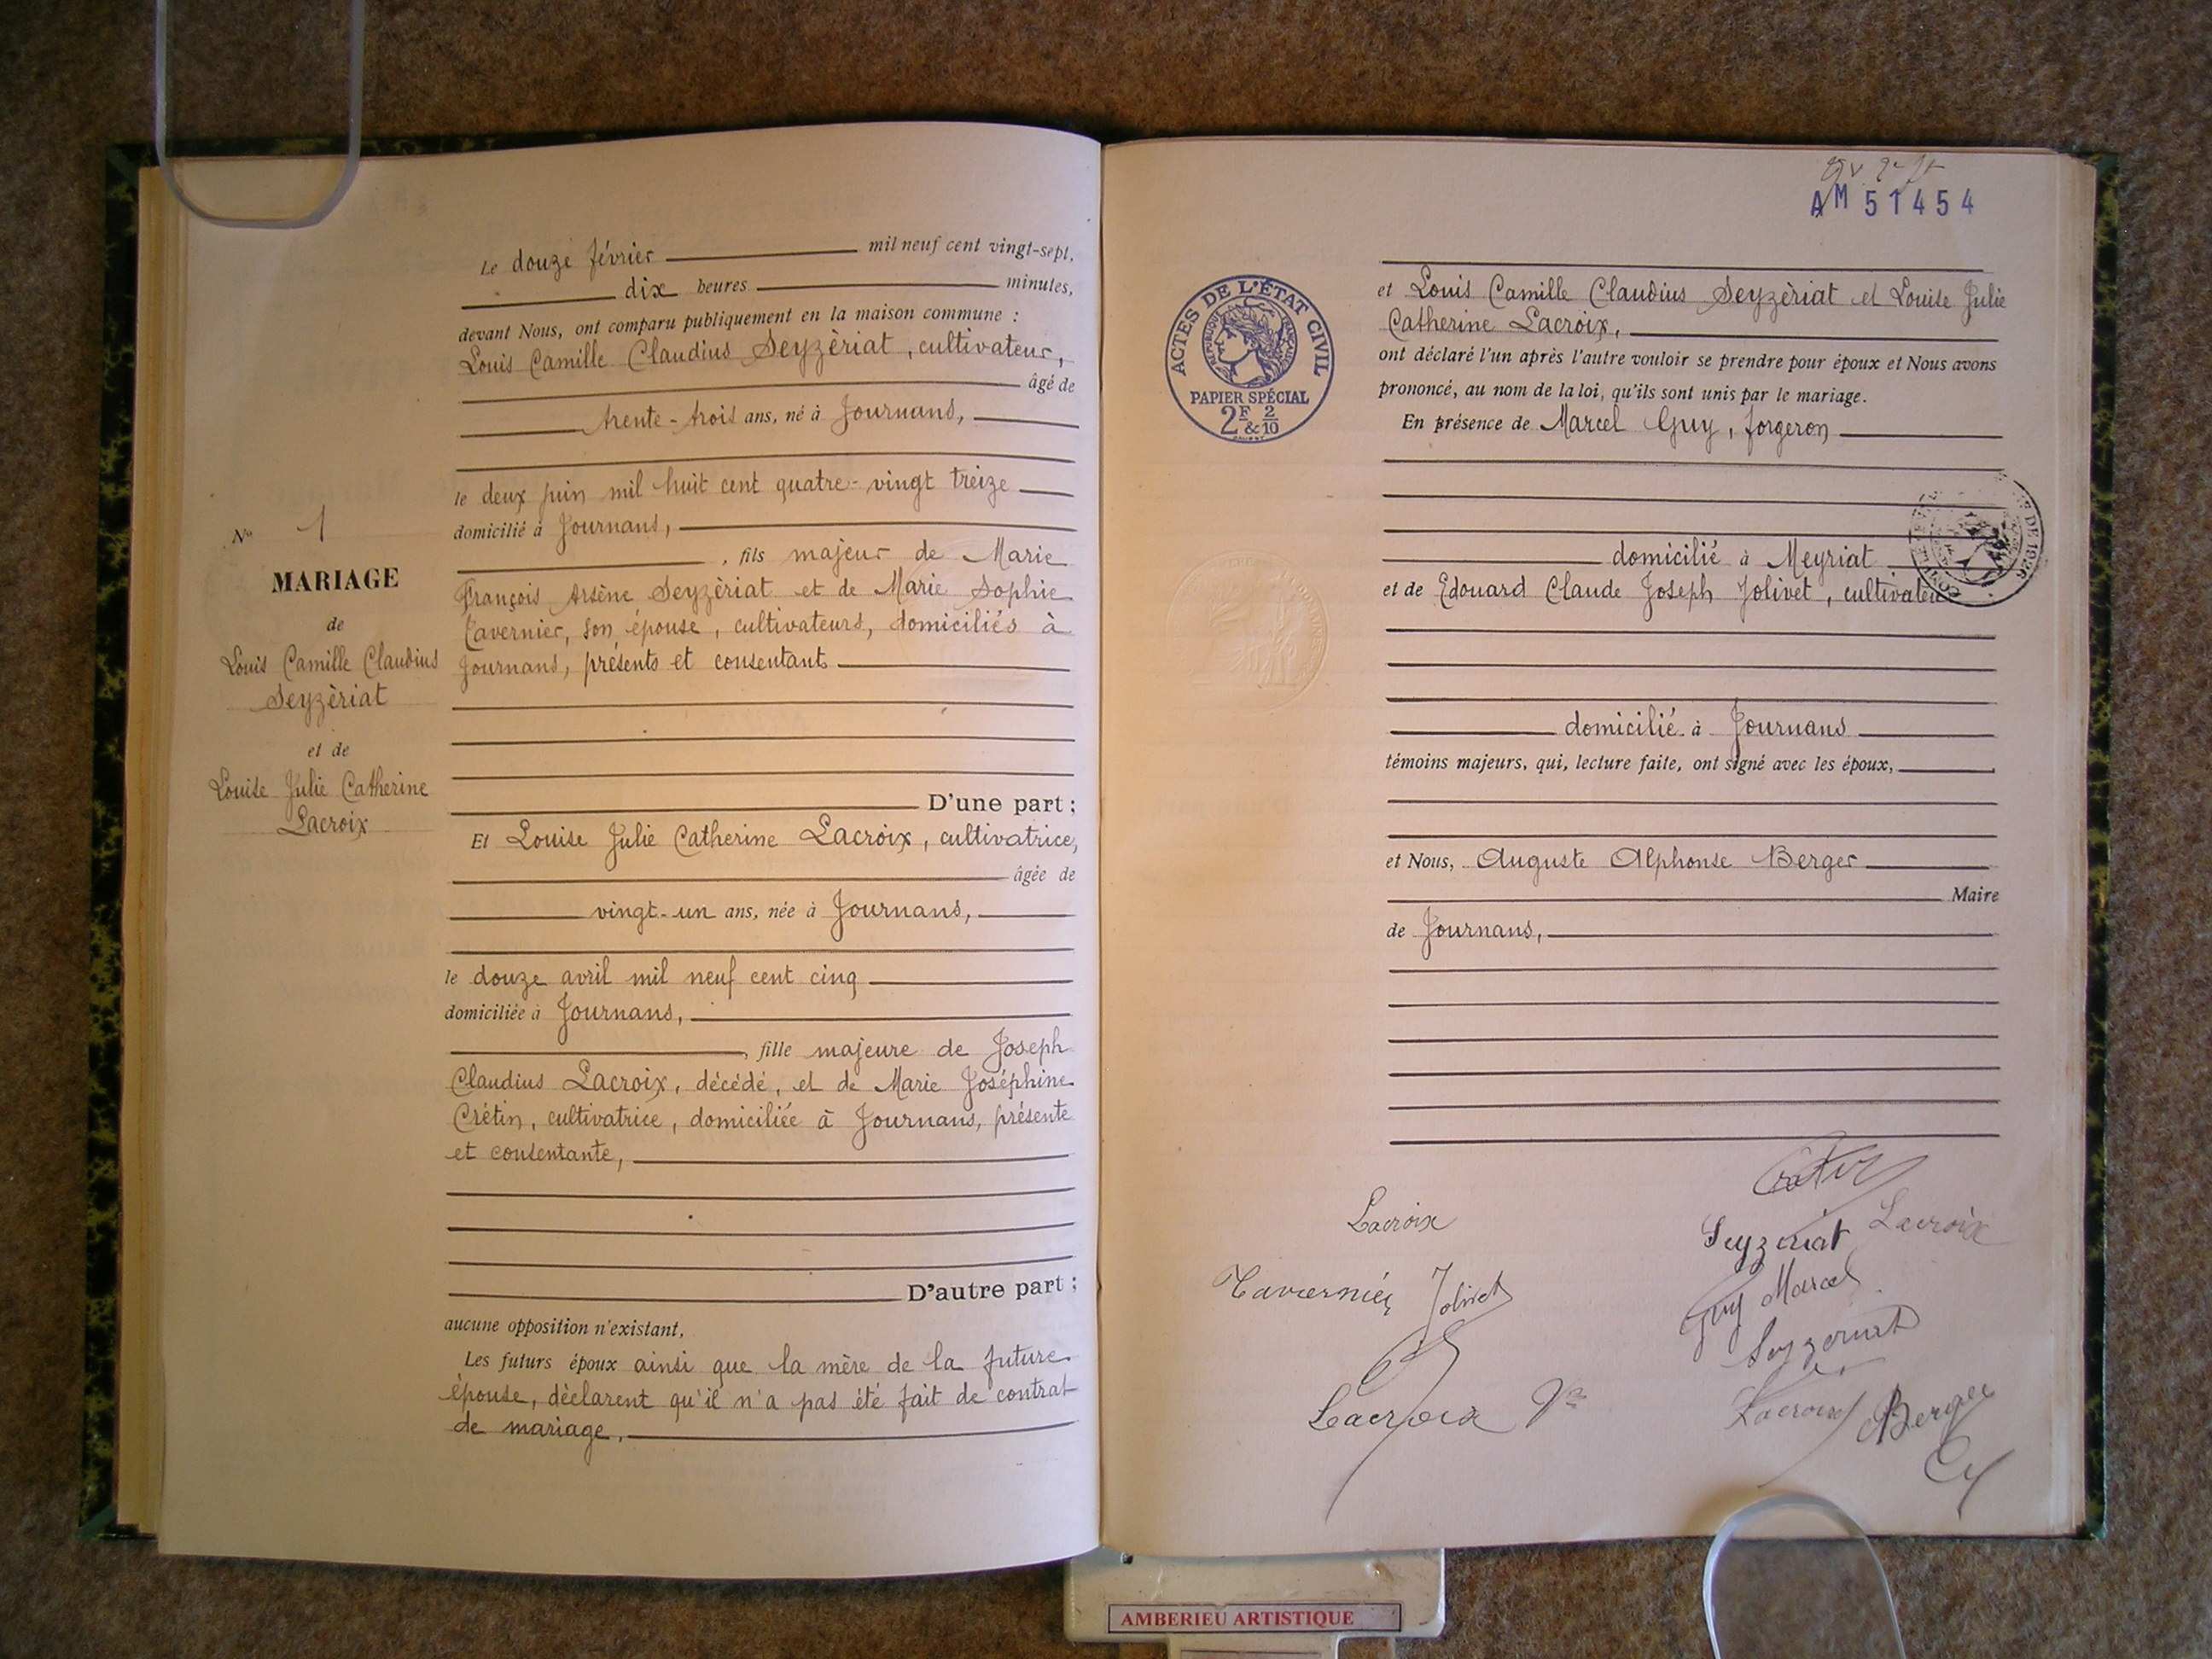 Le douze février mil neuf cent vingt-sept,
dix heures minutes,
devant Nous, ont comparu publiquement en la maison commune :
Louis Camille Claudius Seyzèriat, cultivateur,
âgé de
trente-trois ans, né à Journans,
le deux juin mil huit cent quatre-vingt treize
domicilié à Journans,
, fils majeur de Marie
François Arsène Seyzèriat et de Marie Sophie
Tavernier, son épouse, cultivateurs, domiciliés à
Journans, présents et consentants
D'une part ;
Et Louise Julie Catherine Lacroix, cultivatrice,
âgée de
vingt-un ans, née à Journans,
le douze avril mil neuf cent cinq
domiciliée à Journans,
, fille majeure de Joseph
Claudius Lacroix, décédé, et de Marie Joséphine
Crétin, cultivatrice, domiciliée à Journans, présente
et consentante,
D'autre part ;
aucune opposition n'existant,
Les futurs époux ainsi que la mère de la future
épouse, déclarent qu'il n'a pas été fait de contrat
de mariage,
No 1
MARIAGE
de
Louis Camille Claudius
Seyzèriat
et de
Louise Julie Catherine
Lacroix
AM 51454
ACTES DE L'ÉTAT CIVIL
RÉPUBLIQUE FRANÇAISE
PAPIER SPÉCIAL
2F & 2/10
et Louis Camille Claudius Seyzèriat et Louise Julie
Catherine Lacroix,
ont déclaré l'un après l'autre vouloir se prendre pour époux et Nous avons
prononcé, au nom de la loi, qu'ils sont unis par le mariage.
En présence de Marcel Guy, forgeron
DE 1926
domicilié à Meyriat
et de Edouard Claude Joseph Jolivet, cultivateur
domicilié à Journans
témoins majeurs, qui, lecture faite, ont signé avec les époux,
et Nous, Auguste Alphonse Berger
Maire
de Journans,
Lacroix
Seyzeriat Lacroix
Tavernier Jolivet
Guy Marcel
Seyzeriat
Lacroix
Lacroix Berger
AMBERIEU ARTISTIQUE